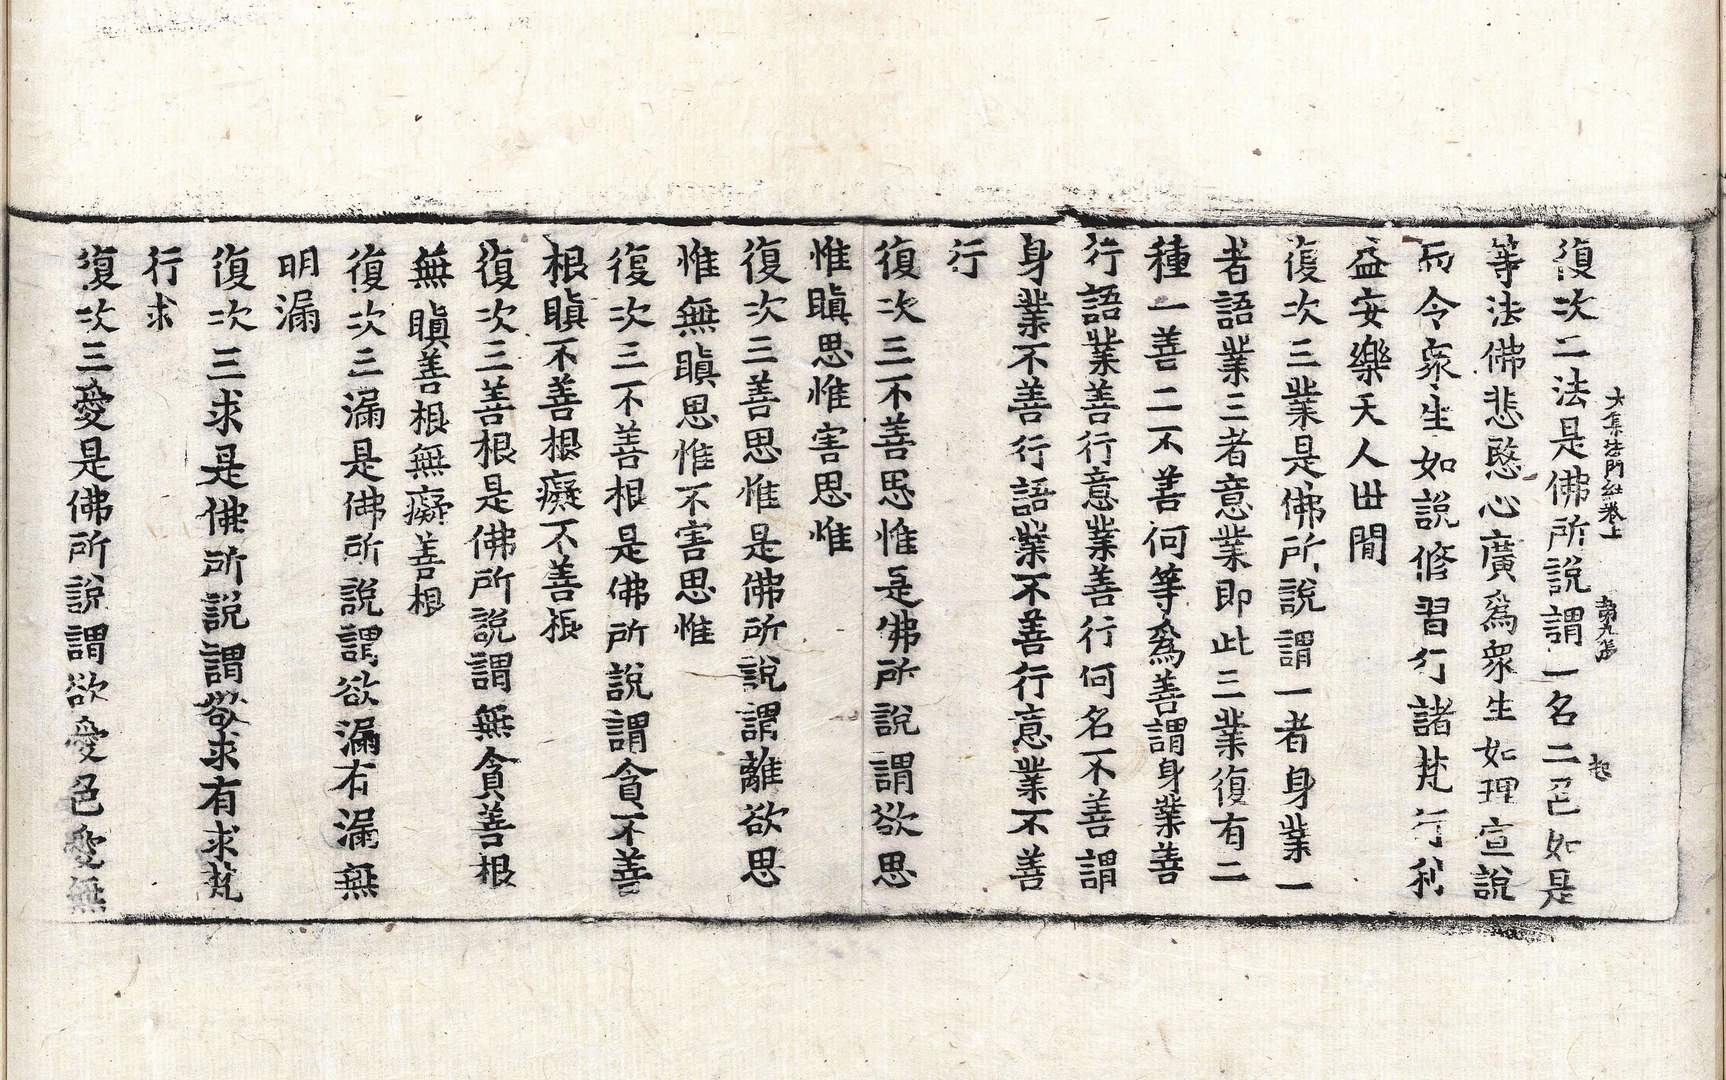 大集法門經卷上 第九張 起
復次二法是佛所說謂一名二色如是
等法佛悲愍心廣為衆生如理宣說
而令衆生如說修習行諸梵行利
益安樂天人世間
復次三業是佛所說謂一者身業二
者語業三者意業即此三業復有二
種一善二不善何等為善謂身業善
行語業善行意業善行何名不善謂
身業不善行語業不善行意業不善
行
復次三不善思惟是佛所說謂欲思
惟瞋思惟害思惟
復次三善思惟是佛所說謂離欲思
惟無瞋思惟不害思惟
復次三不善根是佛所說謂貪不善
根瞋不善根癡不善根
復次三善根是佛所說謂無貪善根
無瞋善根無癡善根
復次三漏是佛所說謂欲漏有漏無
明漏
復次三求是佛所說謂欲求有求梵
行求
復次三愛是佛所說謂欲愛色愛無